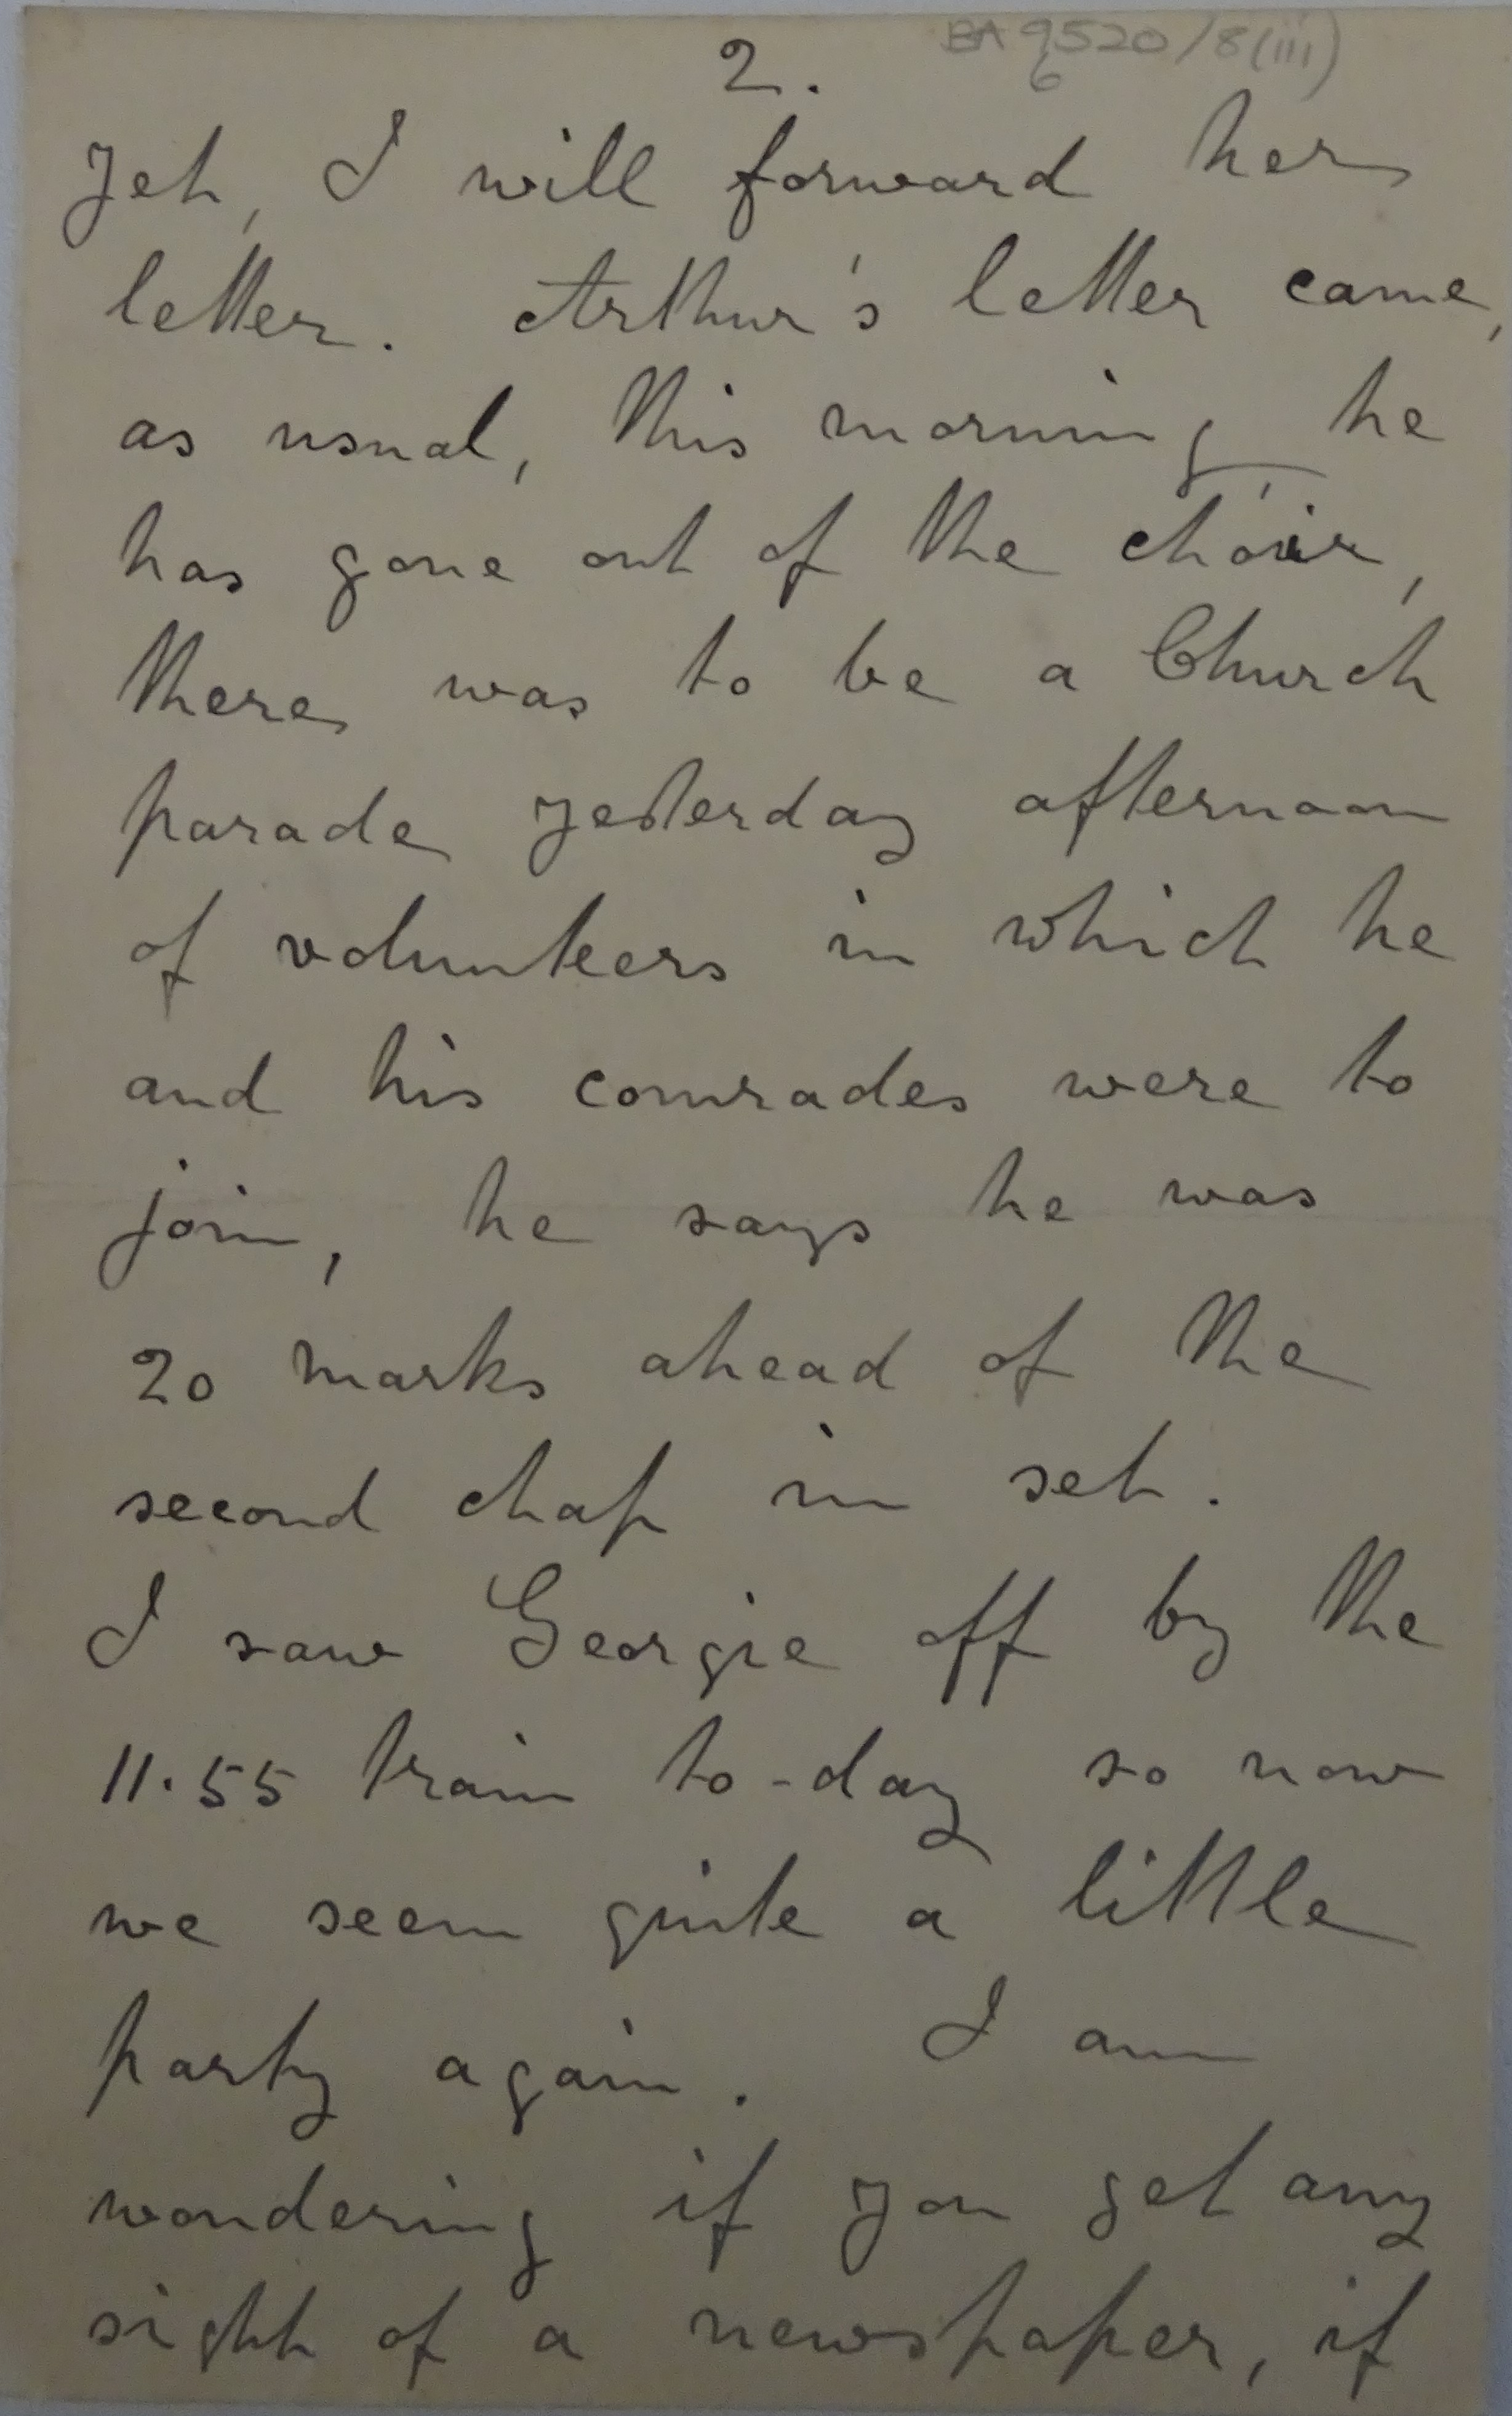 2.
BA 9520/8(iii)
6
yet, I will forward her
letter. Arthur's letter came,
as usual, this morning, he
has gone out of the choir,
there was to be a Church
parade yesterday afternoon
of volunteers in which he
and his comrades were to
join, he says he was
20 marks ahead of the
second chap in set.
I saw Georgie off by the
11.55 train to-day so now
we seem quite a little
party again. I am
wondering if you get any
sight of a newspaper, if